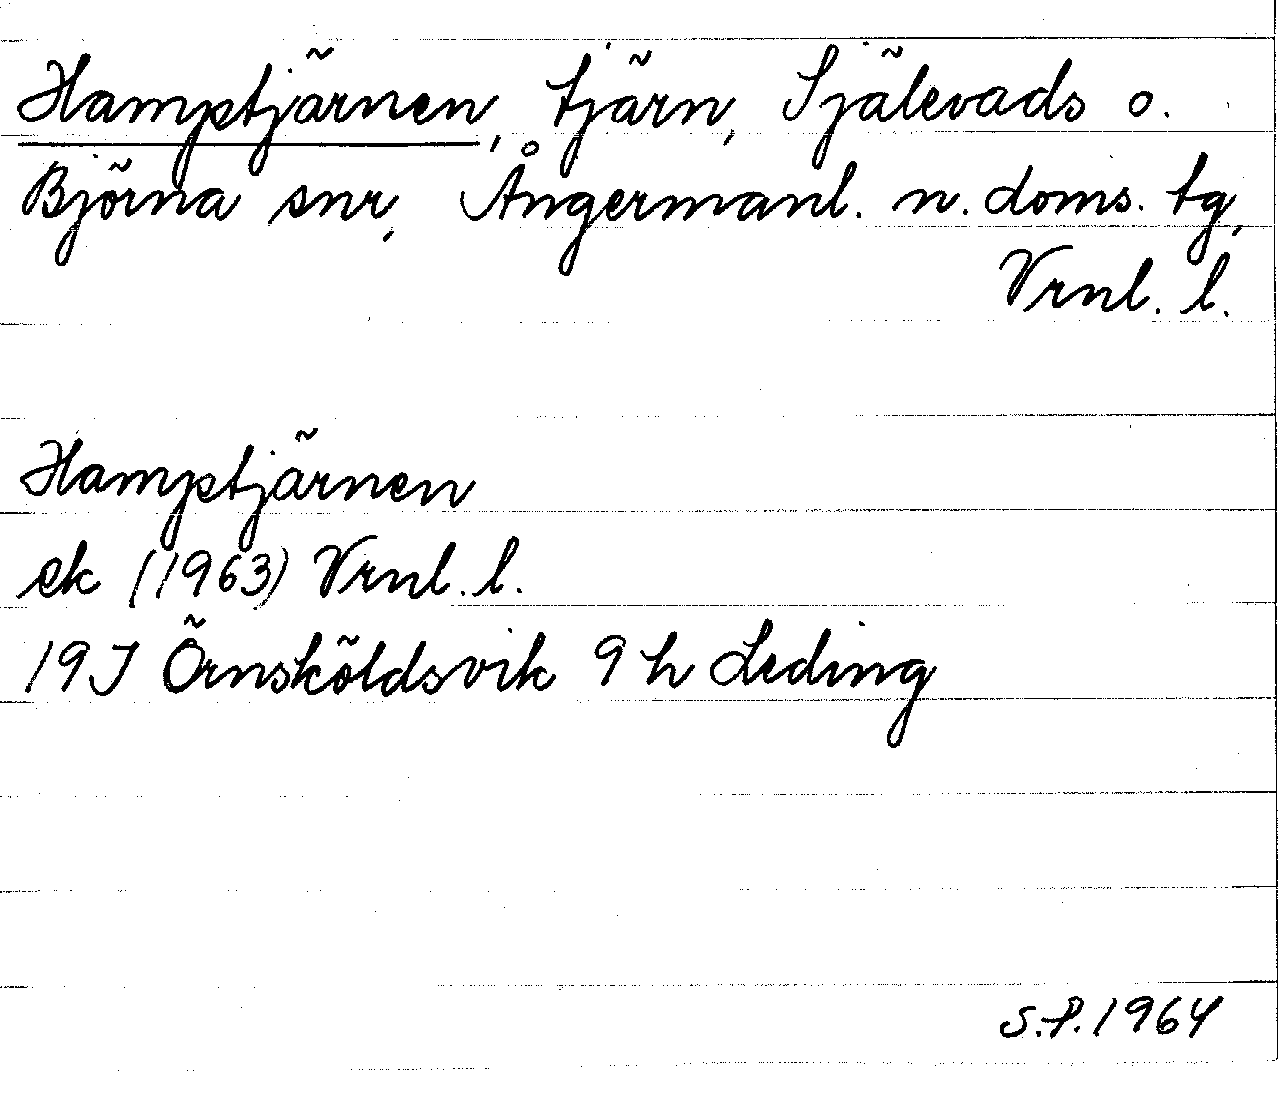 Hamptjärnen, tjärn, Själevads o.
Björna snr, Ångermanl. n. doms. tg,
Vrnl. l.
Hamptjärnen
ek (1963) Vrnl. l.
19J Örnsköldsvik 9 h Leding
S.P. 1964